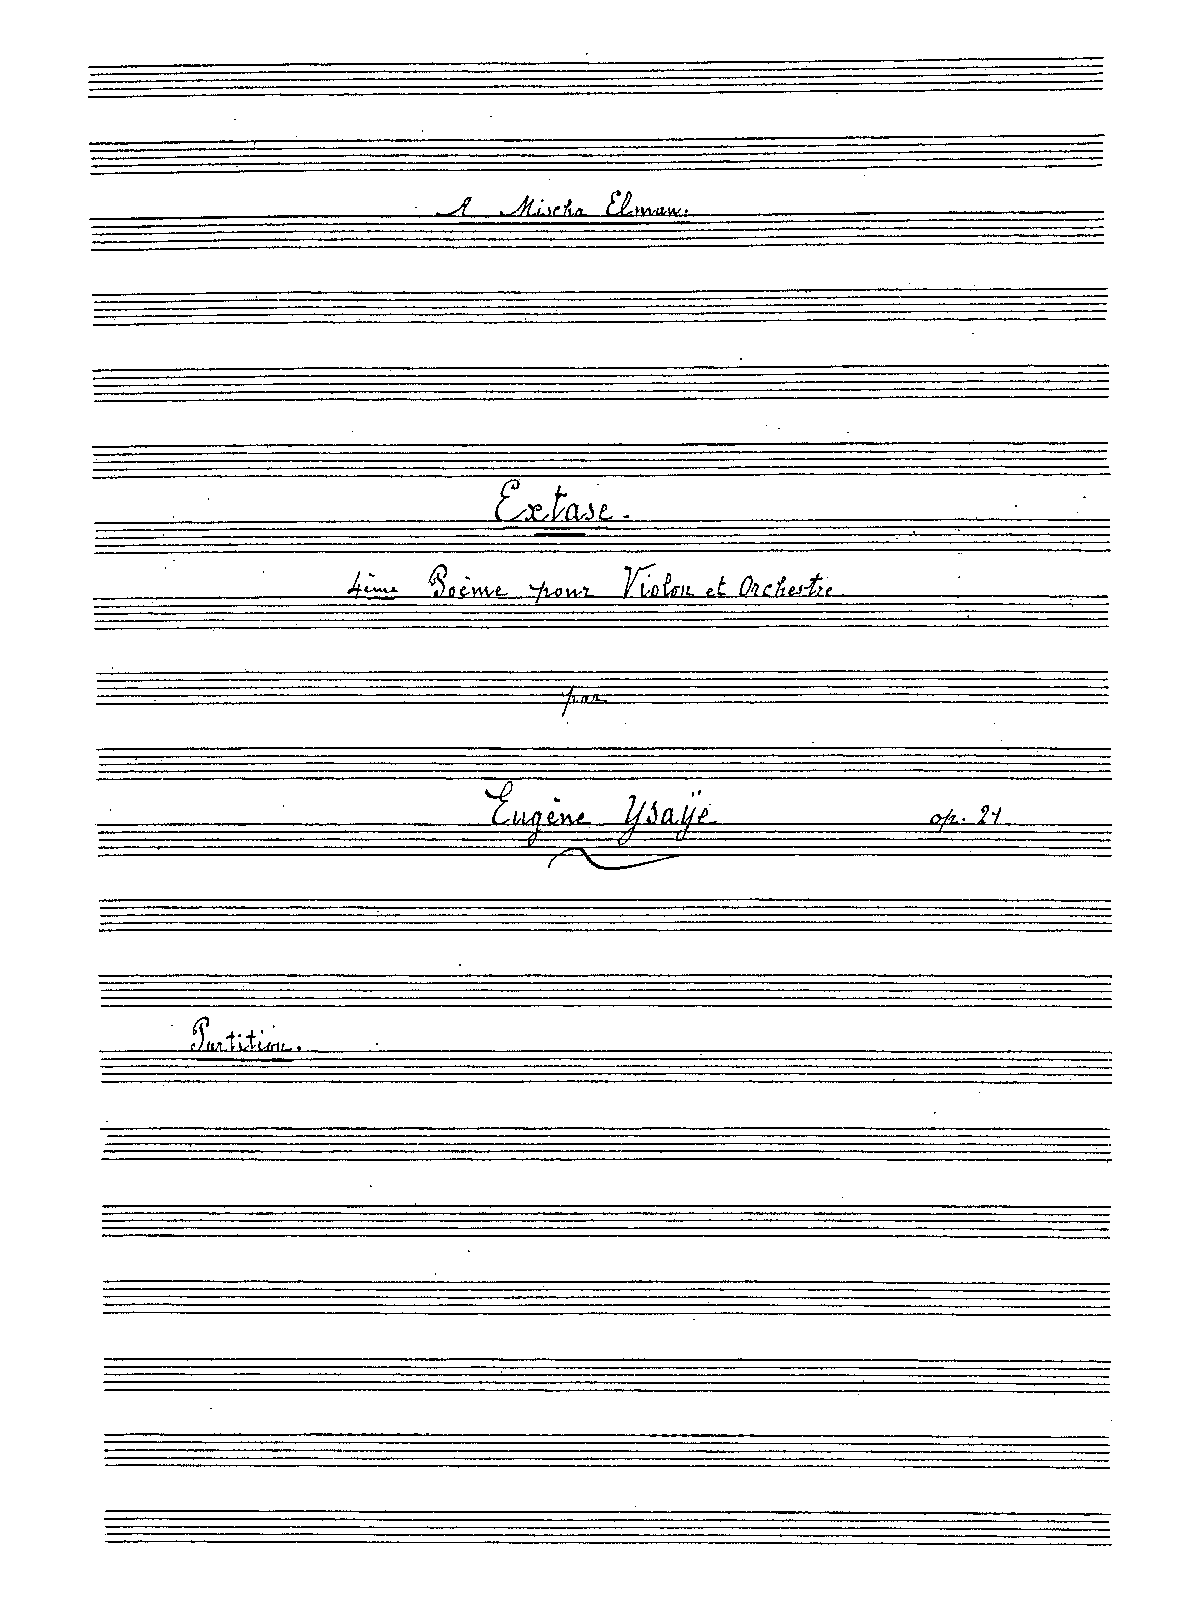 A Mischa Elman.
Extase.
4ème Poème pour Violon et Orchestre
par
Eugène Ysaÿe op. 21
Partition.